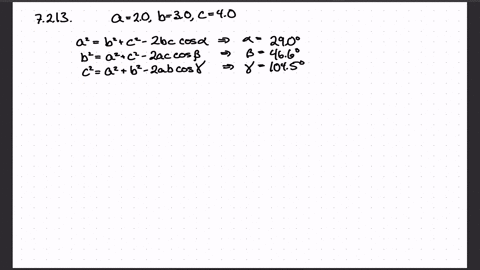 7.213. a=2.0, b=3.0, c=4.0
a² = b² + c² - 2bc cosα ⇒ α = 29.0°
b² = a² + c² - 2ac cosβ ⇒ β = 46.6°
c² = a² + b² - 2ab cosγ ⇒ γ = 104.5°